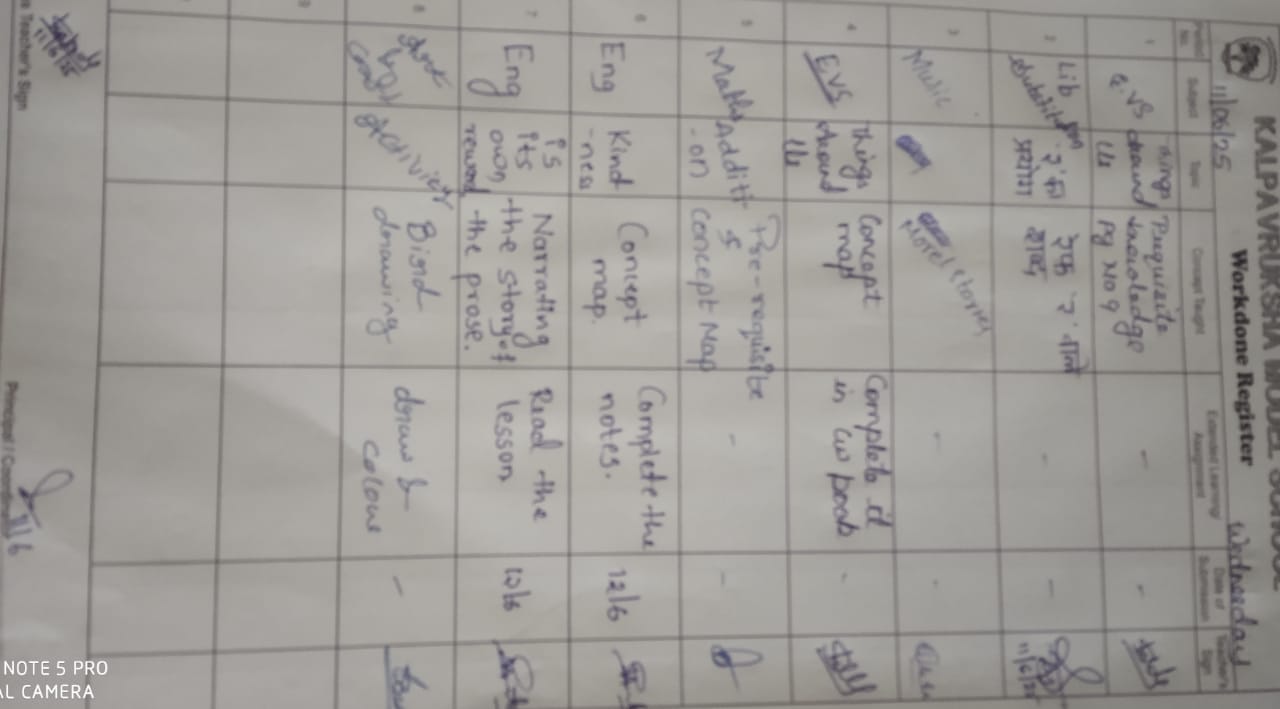 KALPAVRUKSHA MODEL SCHOOL
Workdone Register
11/06/25 Wednesday
Period No. Subject Topic Concept Taught Extended Learning/ Assignment Date of Submission Teacher's Sign
1 E.VS things around Us Prequisite knowledge Pg No 9 - -
2 Lib - -
3 Music Morel stories - -
4 EVS things around Us Concept map Complete it in CW book -
5 Maths Additi -on Pre-requisite & Concept Map - -
6 Eng Kind -ness Concept map. Complete the notes. 12/6
7 Eng is its own reward Narrating the story of the prose. Read the lesson 12/6
8 activity Bird drawing draw & colour -
9
Teacher's Sign
11/6/25
Principal /
11/6
NOTE 5 PRO
AL CAMERA